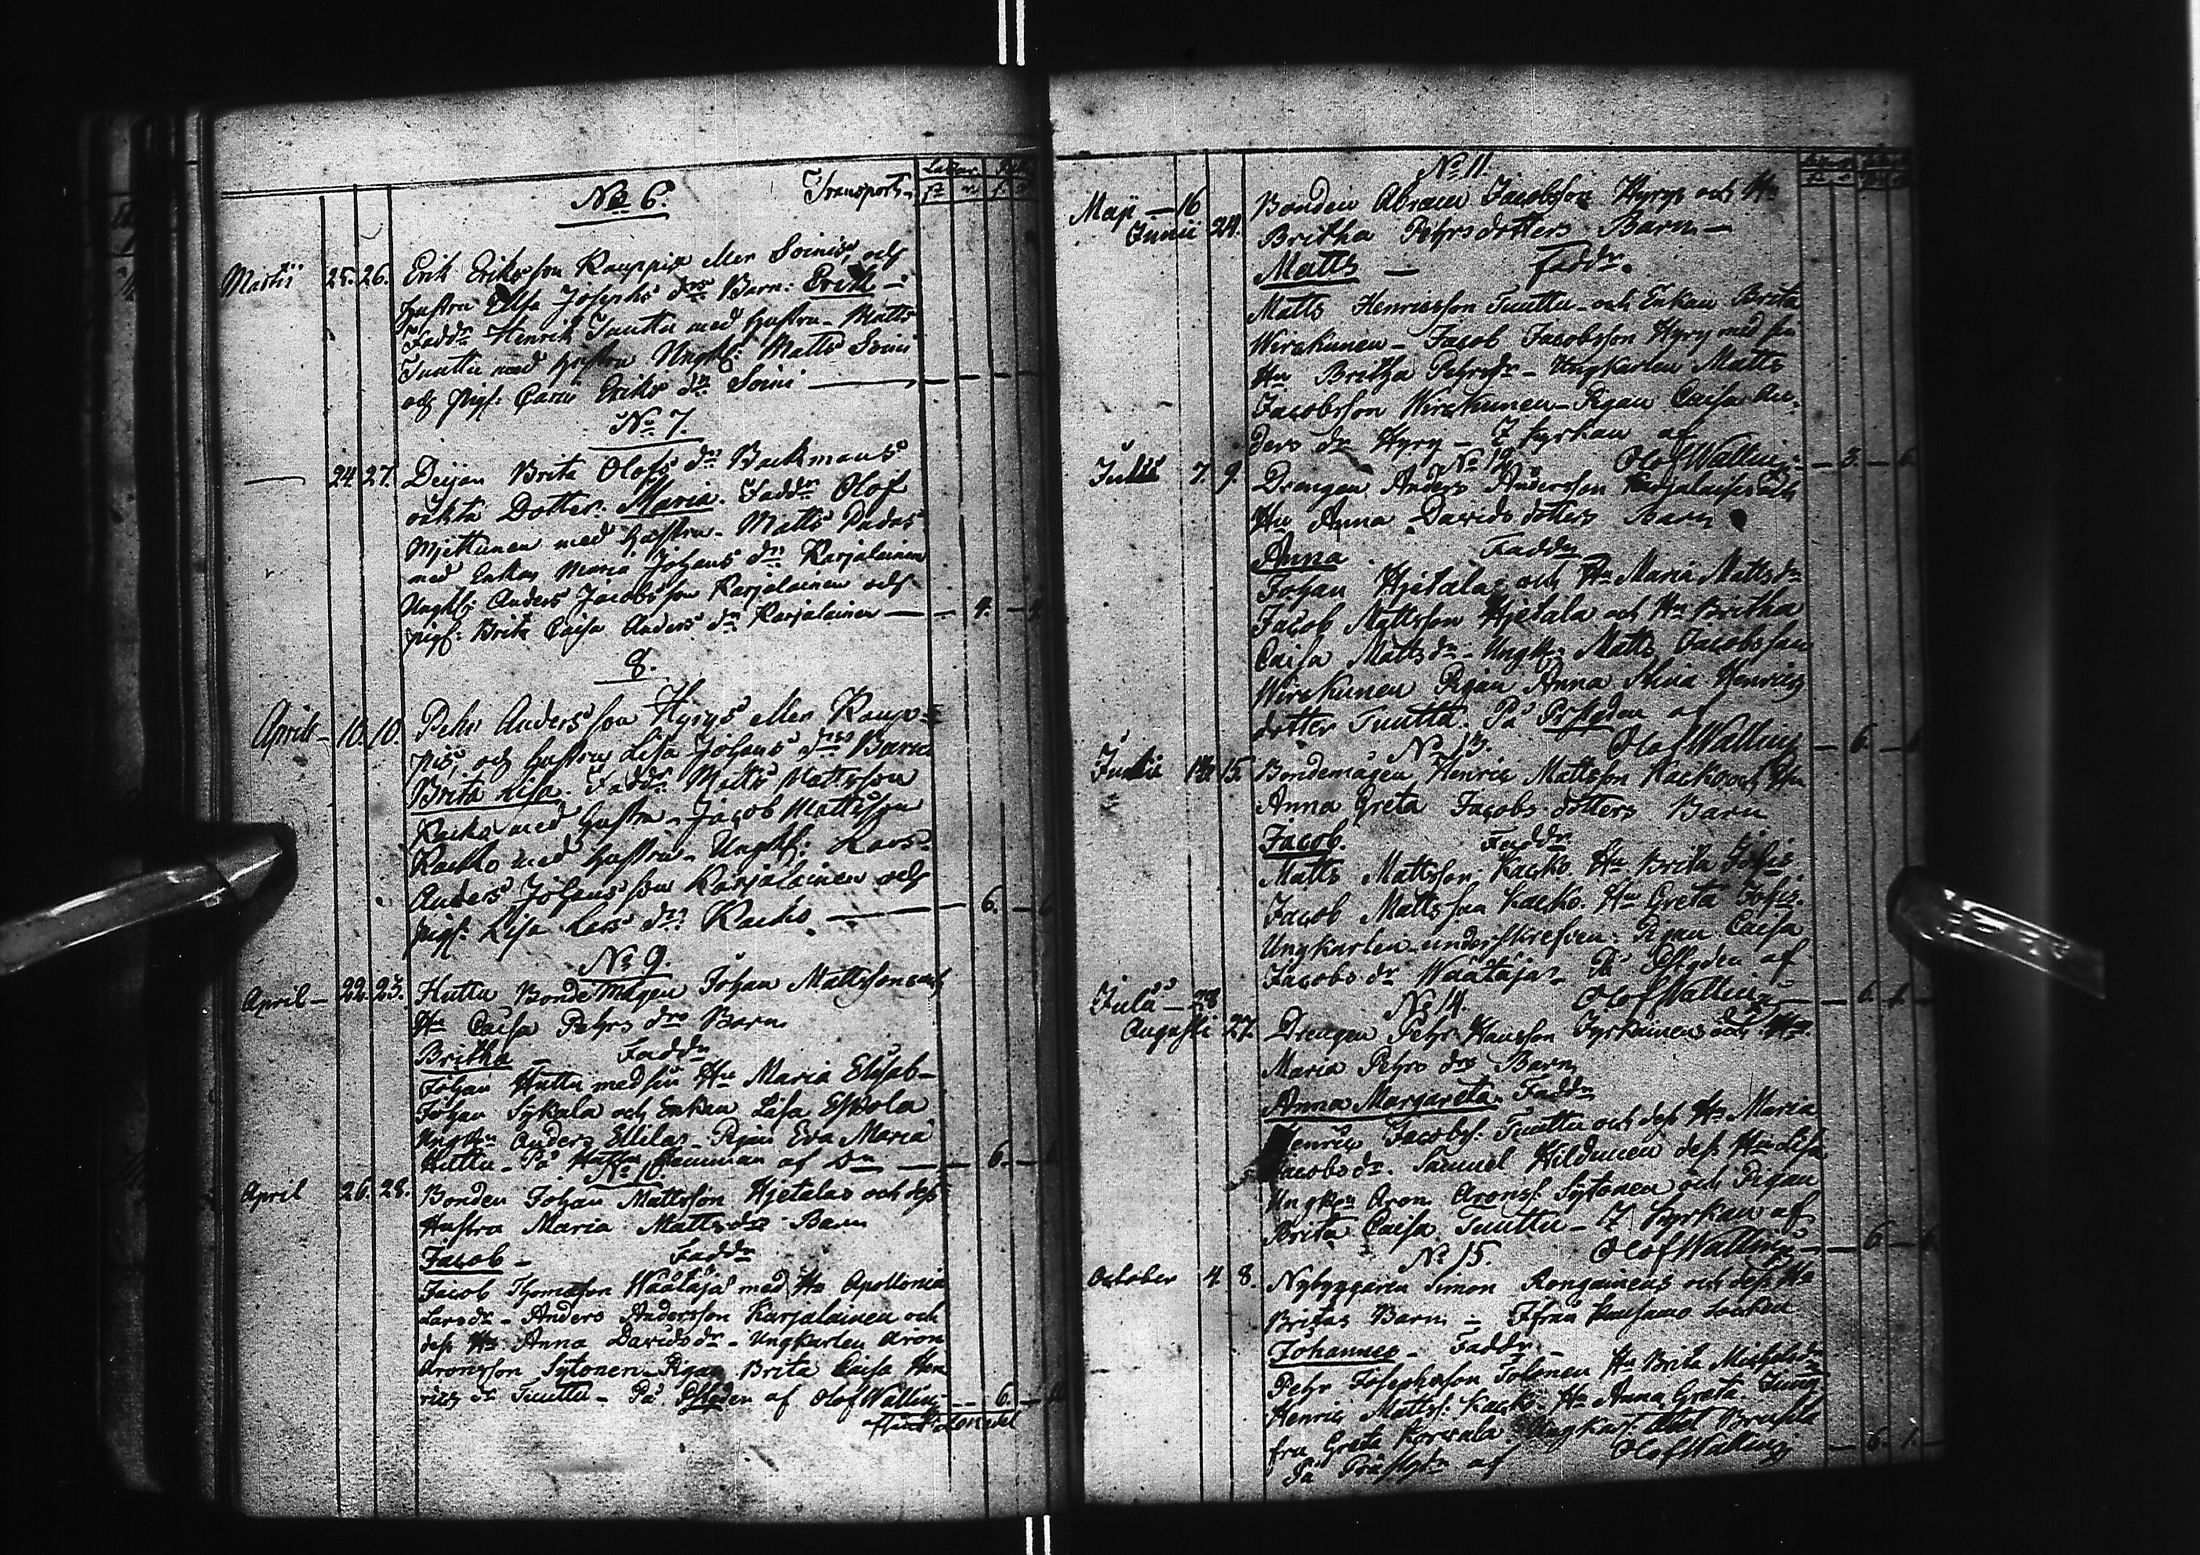 No 6. Transport
Martii 25. 26. Erik Eriksson Kauppis eller Soinis, och
hustru Elsa Josephs drs Barn: Erik
Faddr Henrik Tuuttu med hustru Matts
Tuuttu med hustru Ungk: Matts Soini
och pig: Carin Eriks dr Soini
No 7.
24 27. Deijan Brita Olofs dr Backmans
oäkta Dotter. Maria. Faddr Olof
Mjettunen med hustru. Matts
med Enkan Maria Johans dr Karjalainen
Ungk: Anders Jacobsson Karjalainen och
pig: Brita Caisa Anders dr Karjalainen 4.
8.
April 10. 10. Pehr Andersson Hyrys eller Kaup-
pis, och hustru Lisa Johans drs Barn
Brita Lisa. Faddr Matts Mattsson
Kacko med hustru. Jacob Mattsson
Kacko med hustru. Ungk: Lars
Anders Johansson Karjalainen och
pig: Lisa Lars dr Kacko. 6.
No 9.
April 22. 23. Huttu Bonde Mågen Johan Mattsson och
Hu Caisa Pehrs drs Barn
Britha Faddr
Johan Huttu med sin Hu Maria Elisab-
Johan Sykala och Enkan Lisa Eskola
Ungkn Anders Ellilas. Pigan Eva Maria
Huttu. På Huttu Hemman af 6.
No 10.
April 26. 28. Bonden Johan Mattsson Hjetalas och dess
Hustru Maria Mattsdr Barn
Jacob Faddr
Jacob Thomasson Wäätäjä med Hu Apollonia
Larsdr. Anders Andersson Karjalainen och
dess Hu Anna Davidsdr. Ungkarlen Aron
Aronsson Sytonen. Pigan Brita Caisa Hen
rics dr Tuuttu. På af Olof Walling 6.
No 11.
Maji 16 Bonden Abram Jacobsson Hyrys och Hu
Junii 24. Britha Pehrsdotters Barn
Matts Faddr.
Matts Henricsson Tuuttu och Enkan Brita
Wirckunen. Jacob Jacobsson Hyry med sin
Hu Britha Pehrsdr. Ungkarlen Matts
Jacobsson Wirckunen. Pigan Caisa An-
ders dr Hyry. I kyrkan af
No 12. Olof Walling 3. 6.
Julii 7. 9. Drengen Anders Andersson Karjalaises och
Hu Anna Davidsdotters Barn
Anna Faddr
Johan Hjetala och Hu Maria Mattsdr
Jacob Mattsson Hjetala och Hu Britha
Caisa Mattsdr. Ungk. Matts Jacobsson
Wirckunen Pigan Anna Stina Henrics
dotter Tuuttu. På af
No 13. Olof Walling 6.
14. 15. Bondemågen Henric Mattsson Kackos och Hu
Anna Greta Jacobs dotters Barn
Jacob. Faddr
Matts Mattsson Kacko. Hu Brita
Jacob Mattsson Kacko. Hu Greta
Ungkarlen underskrefven. Pigan Caisa
Jacobs dr Wäätäjä. På af
No 14. Olof Walling 6.
Julii 28 Drengen Pehr Hansson Tyrkäinens och Hu
Augusti 27. Maria Pehrs drs Barn
Anna Margareta. Faddr
Henric Jacobs. Tuuttu och dess Hu Maria
Jacobsdr. Samuel Hildunen dess Hu Lisa
Ungkn Aron Arons. Sytonen och Pigan
Brita Caisa Tuuttu. I kyrkan af
No 15. Olof Walling 6.
October 4. 8. Nybyggaren Simon Rongainens och dess Hu
Britas Barn. Ifrån Kusamo Socken
Johannes. Faddr
Pehr Josephsson Tolonen Hu Brita Michelsdr
Henric Matts. Kacko. Hu Anna Greta. Jung
fru Greta Ungkarl.
På af Olof Walling 6. 1.